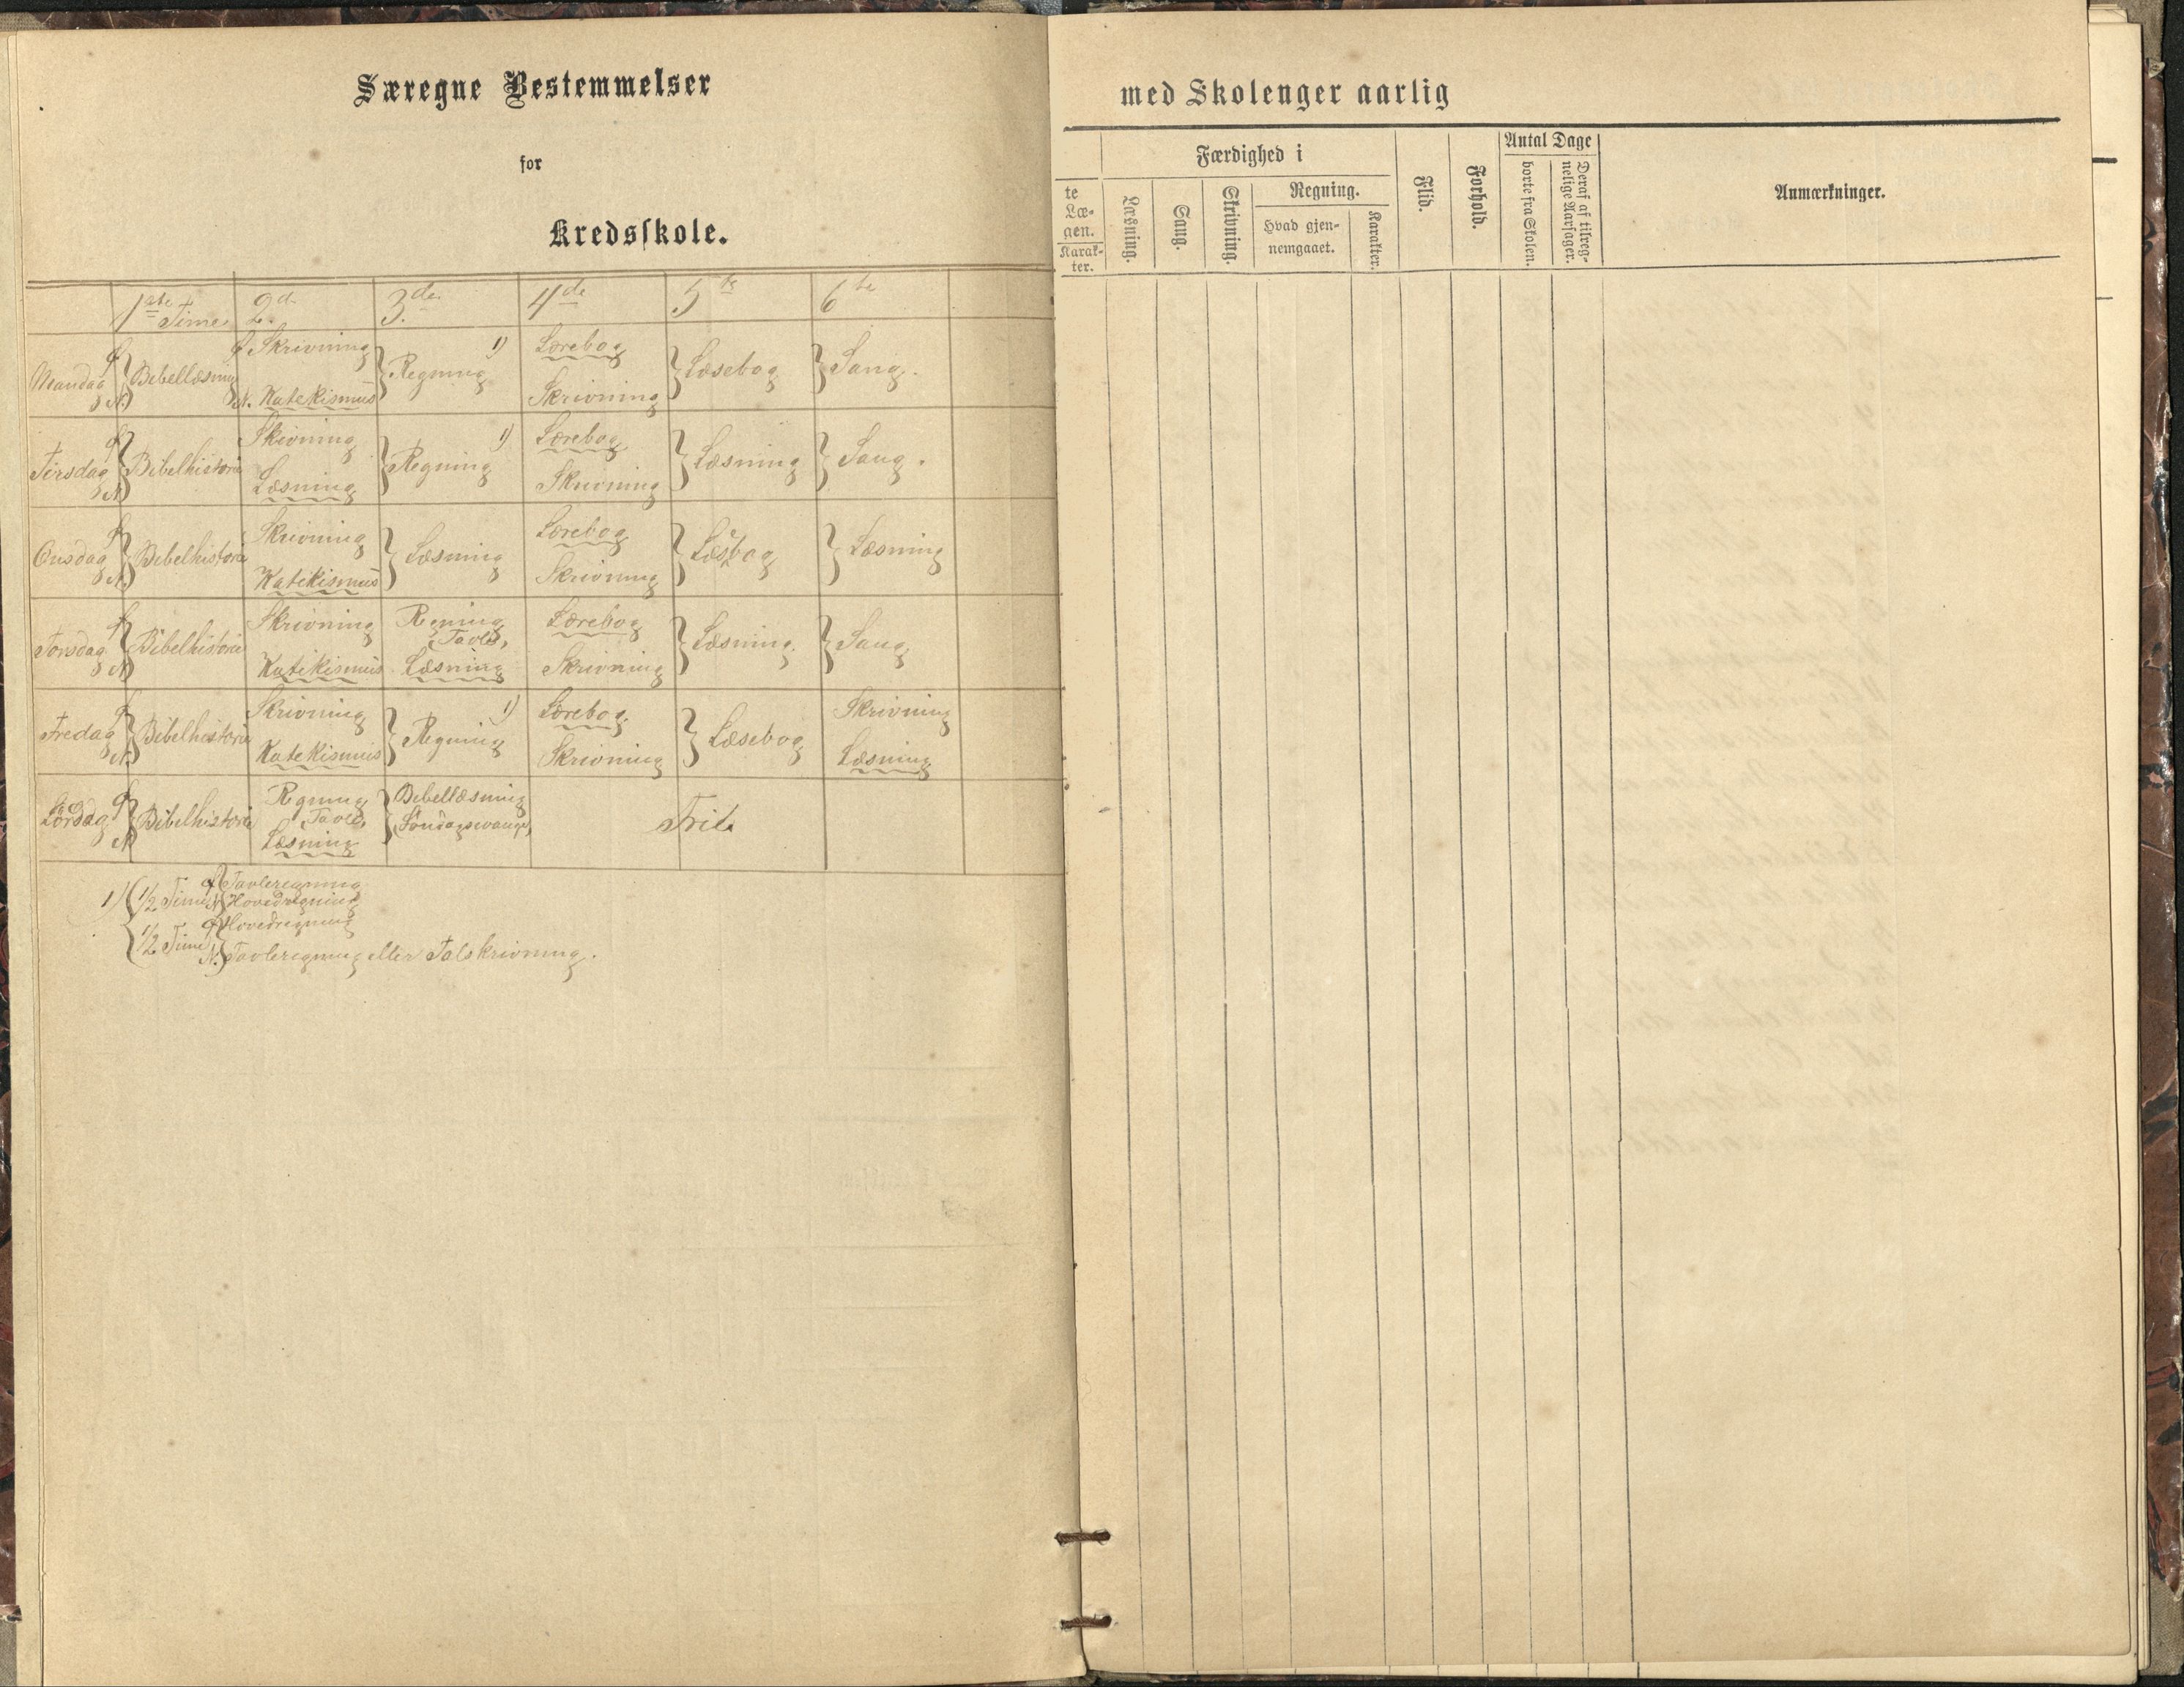 Særegne Bestemmelser
for
Kredsskole.
1ste Time 2d 3de 4de 5te 6te
Mandag Ø N. } Bibellæsning Ø Skrivning } Regning 1) Lærebog } Læsebog } Sang.
N. Katekismus Skrivning
Tirsdag Ø N } Bibelhistorie Skrivning } Regning 1) Lærebog } Læsning } Sang.
Læsning Skrivning
Onsdag Ø N. } Bibelhistorie Skrivning } Læsning Lærebog } Læsbog } Læsning
Katikismus Skrivning
Torsdag Ø N } Bibelhistorie Skrivning Regning Lærebog } Læsning. } Sang
(Tavle)
Katikismus Læsning Skrivning
Fredag Ø N. } Bibelhistorie Skrivning } Regning 1) Lærebog } Læsebog Skrivning
Katekismus Skrivning Læsning
Lørdag Ø N } Bibelhistorie Regning } Bibellæsning Frit
(Tavle)
Læsning
1) { 1/2 Time Ø Tavleregning
N Hovedregning
{ 1/2 Time Ø Hovedregning
N. Tavleregning eller Talskrivning.
med Skolenger aarlig
te
Læ-
gen.
Karak-
ter.
Færdighed i
Læsning.
Sang.
Skrivning.
Regning.
Hvad gjen-
nemgaaet.
Karakter.
Flid.
Forhold.
Antal Dage
borte fra Skolen.
Deraf af tilreg-
nelige Aarsager.
Anmærkninger.